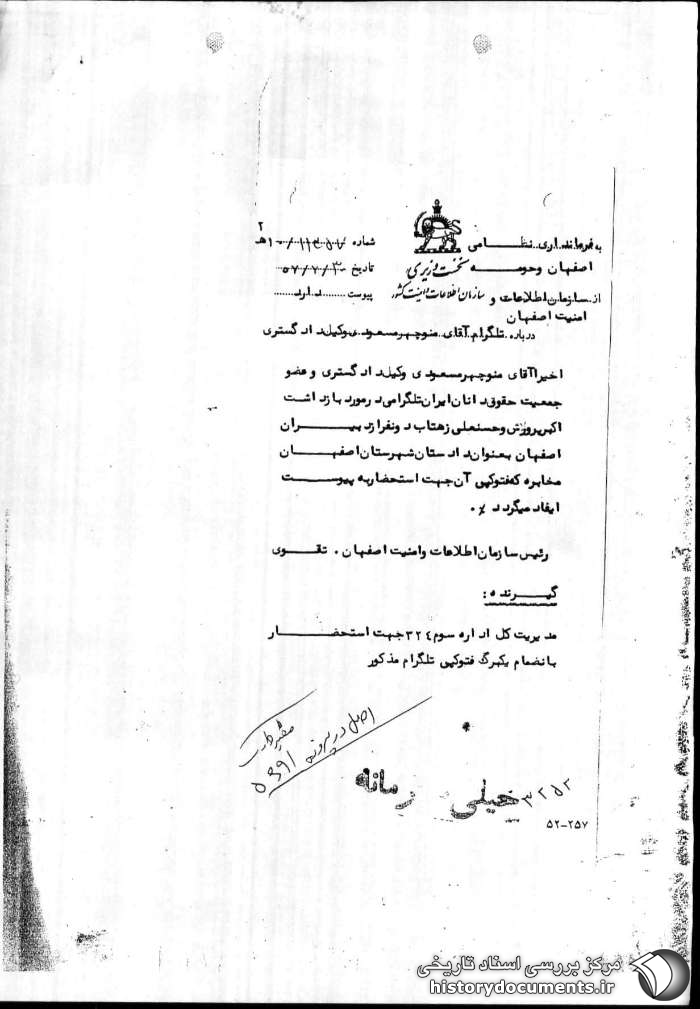 به فرمانداری نظامی
اصفهان وحومه
از سازمان اطلاعات و
امنیت اصفهان
نخست وزیری
سازمان اطلاعات و امنیت کشور
شماره
تاریخ ۵۷/۷/۳۰
پیوست دارد
درباره تلگرام آقای منوچهر مسعودی وکیل دادگستری
اخیراً آقای منوچهر مسعودی وکیل دادگستری و عضو
جمعیت حقوق دانان ایران تلگرامی در مورد بازداشت
اکبر پرورش وحسنعلی زهتاب دونفر از دبیران
اصفهان بعنوان دادستان شهرستان اصفهان
مخابره که فتوکپی آن جهت استحضار به پیوست
ایفاد میگردد ٪.
رئیس سازمان اطلاعات وامنیت اصفهان . تقوی
گیرنده :
مدیریت کل اداره سوم ۳۲۴ جهت استحضار
بانضمام یکبرگ فتوکپی تلگرام مذکور
اصل در پرونده
خیلی محرمانه
۳۲۵۲
۵۲-۲۵۷
مرکز بررسی اسناد تاریخی
historydocuments.ir